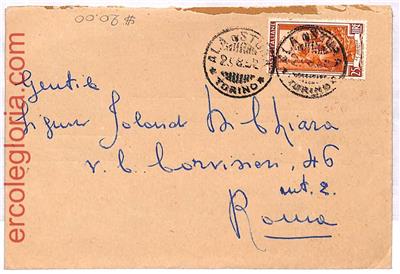 $ 20.00
ALA OSTUR
23.8.52
TORINO
25
Gentile
Signora Jolanda Di Chiara
v. C. Corvisieri, 46
int. 2.
Roma
ercolegloria.com